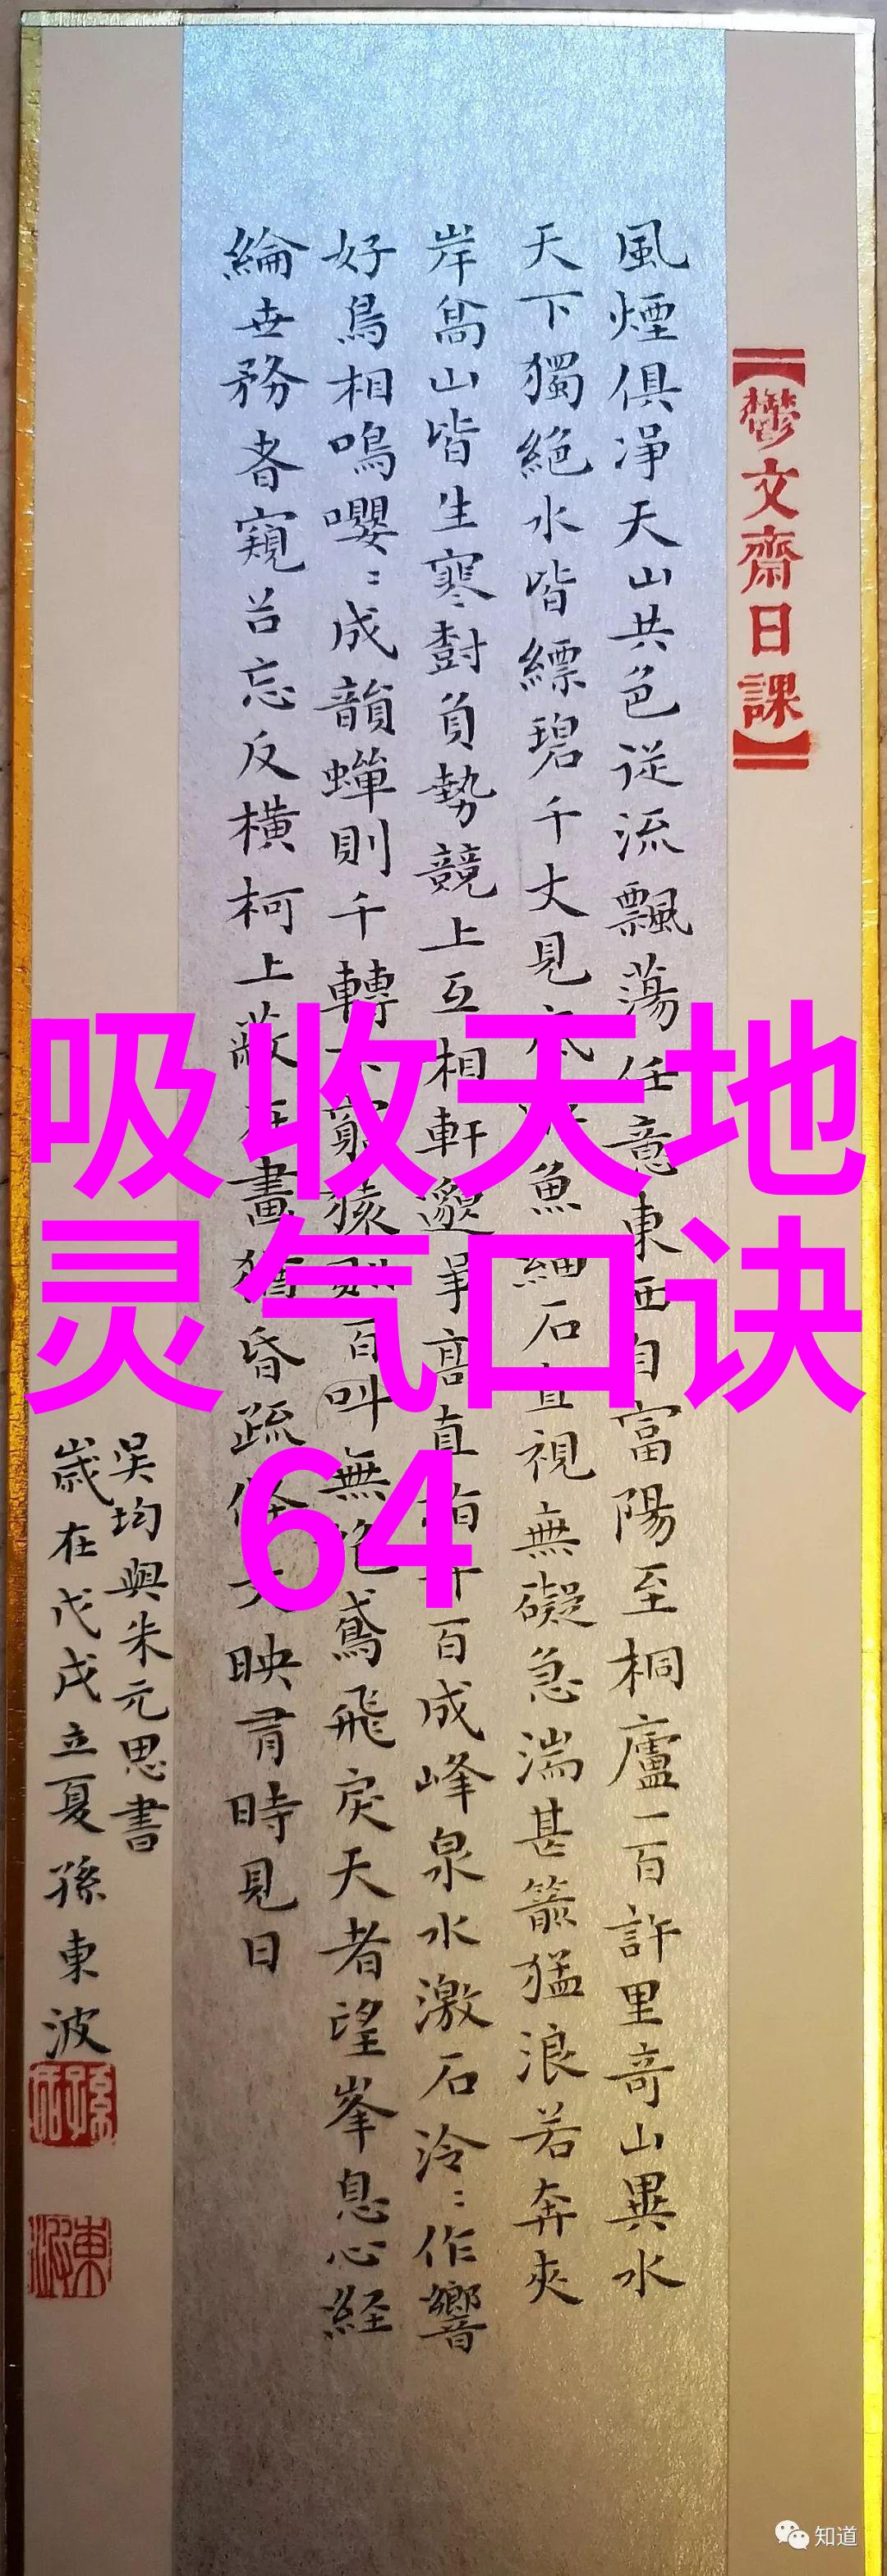 【鬱文齋日課】
風煙俱淨天山共色従流飄蕩任意東西自富陽至桐廬一百許里奇山異水
天下獨絕水皆縹碧千丈見底游魚細石直視無礙急湍甚箭猛浪若奔夾
岸高山皆生寒樹負勢競上互相軒邈爭高直指千百成峰泉水激石泠〻作響
好鳥相鳴嚶〻成韻蟬則千轉不窮猿則百叫無絕鳶飛戾天者望峯息心経
綸世務者窺谷忘反橫柯上蔽在晝猶昏疏條交映有時見日
吳均與朱元思書
歲在戊戌立夏孫東波
吸收天地
灵气口诀
64
知道